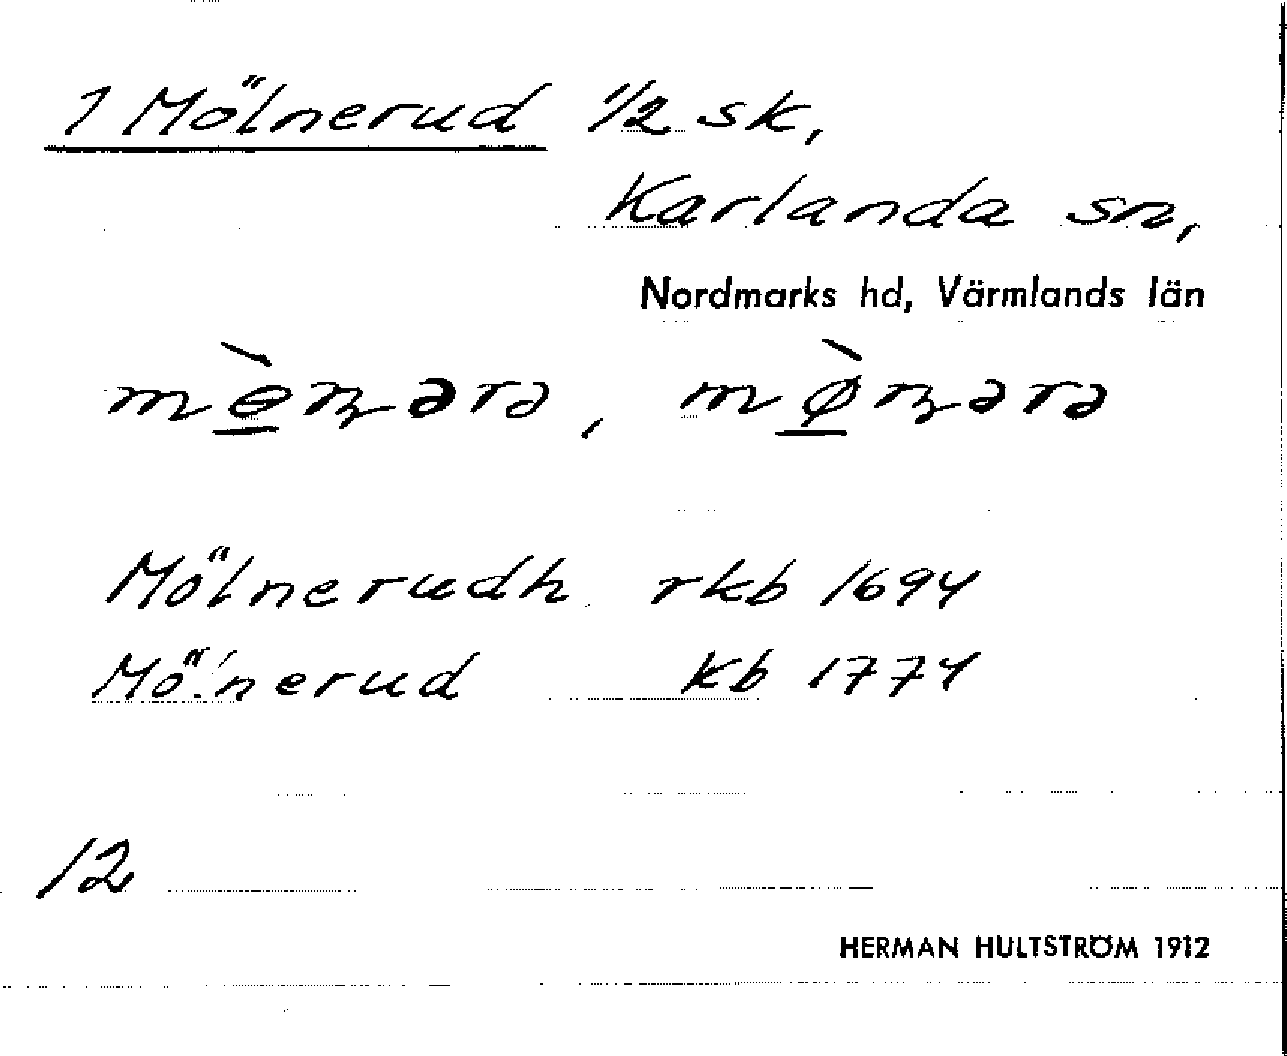 1 Mölnerud 1/2 sk,
Karlanda sn,
Nordmarks hd, Värmlands län
Mölnerudh rkb 1694
Mölnerud kb 1774
12
HERMAN HULTSTRÖM 1912